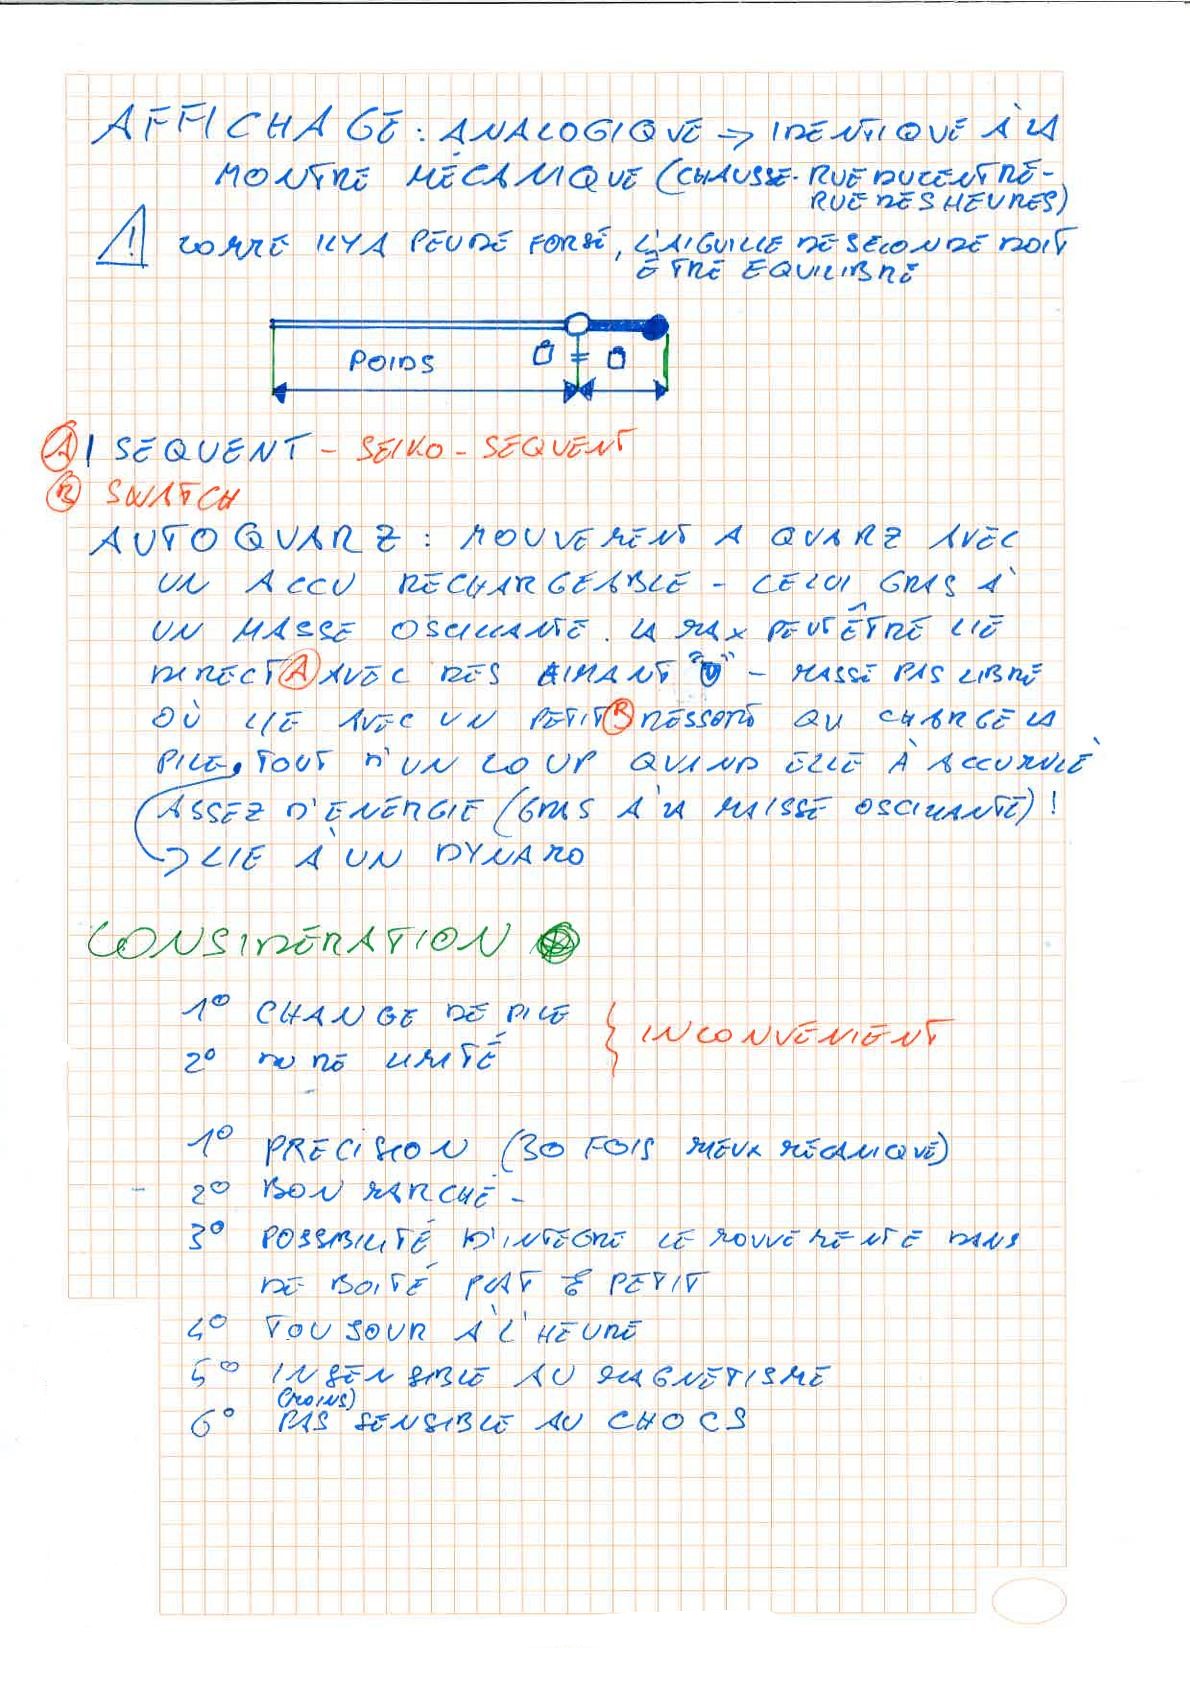 AFFICHAGE : ANALOGIQUE → IDENTIQUE À LA
MONTRE MÉCANIQUE (CHAUSSE-RUE DU CENTRE-
RUE DES HEURES)
! COMME IL Y A PEU DE FORSE, L'AIGUILLE DE SECONDE DOIT
ÊTRE EQUILIBRÉ
POIDS =
A SEQUENT - SEIKO - SEQUENT
B SWATCH
AUTOQUARZ : MOUVEMENT A QUARZ AVEC
UN ACCU RECHARGEABLE - CELUI GRAS À
UN MASSE OSCILLANTE. LA MAX PEUT ÊTRE LIE
DIRECT A AVEC DES AIMANT - MASSE PAS LIBRE
OÙ LIE AVEC UN PETIT B RESSORT QU CHARGE LA
PILE, TOUT D'UN COUP QUAND ELLE À ACCUMULÉ
ASSEZ D'ENERGIE (GRAS A LA MAISSE OSCILLANTE) !
→ LIE À UN DYNAMO
CONSIDERATION
1° CHANGE DE PILE
2° DURE LIMITÉ
} INCONVENIENT
1° PRECISION (30 FOIS MIEUX MÉCANIQUE)
2° BON MARCHÉ -
3° POSSIBILITÉ D'INTEGRE LE MOUVEMENTE DANS
DE BOITE PLAT & PETIT
4° TOUSOUR À L'HEURE
5° INSENSIBLE AU MAGNETISME
(MOINS)
6° PAS SENSIBLE AU CHOCS